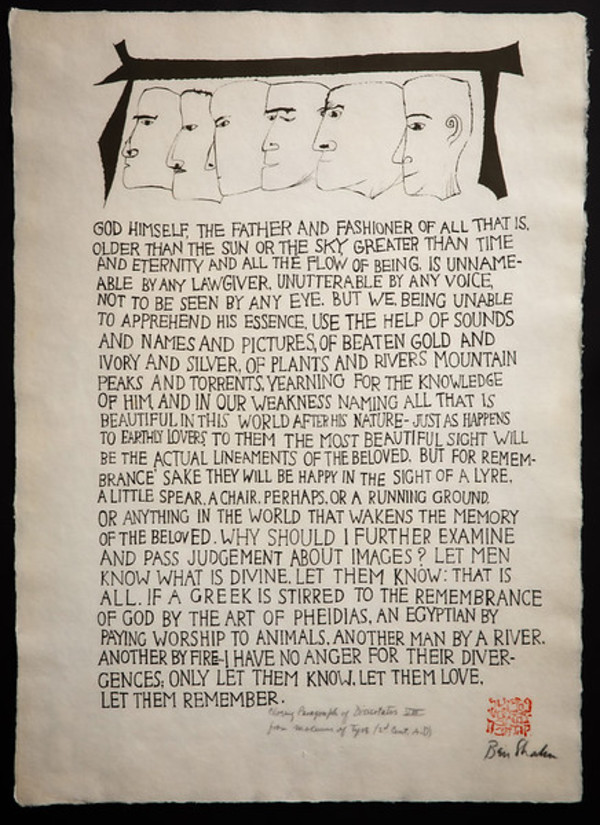 GOD HIMSELF, THE FATHER AND FASHIONER OF ALL THAT IS,
OLDER THAN THE SUN OR THE SKY GREATER THAN TIME
AND ETERNITY AND ALL THE FLOW OF BEING, IS UNNAME-
ABLE BY ANY LAWGIVER, UNUTTERABLE BY ANY VOICE,
NOT TO BE SEEN BY ANY EYE. BUT WE, BEING UNABLE
TO APPREHEND HIS ESSENCE, USE THE HELP OF SOUNDS
AND NAMES AND PICTURES, OF BEATEN GOLD AND
IVORY AND SILVER, OF PLANTS AND RIVERS MOUNTAIN
PEAKS AND TORRENTS, YEARNING FOR THE KNOWLEDGE
OF HIM, AND IN OUR WEAKNESS NAMING ALL THAT IS
BEAUTIFUL IN THIS WORLD AFTER HIS NATURE- JUST AS HAPPENS
TO EARTHLY LOVERS, TO THEM THE MOST BEAUTIFUL SIGHT WILL
BE THE ACTUAL LINEAMENTS OF THE BELOVED. BUT FOR REMEM-
BRANCE' SAKE THEY WILL BE HAPPY IN THE SIGHT OF A LYRE,
A LITTLE SPEAR, A CHAIR, PERHAPS, OR A RUNNING GROUND,
OR ANYTHING IN THE WORLD THAT WAKENS THE MEMORY
OF THE BELOVED. WHY SHOULD I FURTHER EXAMINE
AND PASS JUDGEMENT ABOUT IMAGES? LET MEN
KNOW WHAT IS DIVINE, LET THEM KNOW: THAT IS
ALL. IF A GREEK IS STIRRED TO THE REMEMBRANCE
OF GOD BY THE ART OF PHEIDIAS, AN EGYPTIAN BY
PAYING WORSHIP TO ANIMALS, ANOTHER MAN BY A RIVER,
ANOTHER BY FIRE-I HAVE NO ANGER FOR THEIR DIVER-
GENCES; ONLY LET THEM KNOW, LET THEM LOVE,
LET THEM REMEMBER.
Closing Paragraph of Dissertatio VIII
from Maximus of Tyre (2d Cent. A.D)
Ben Shahn